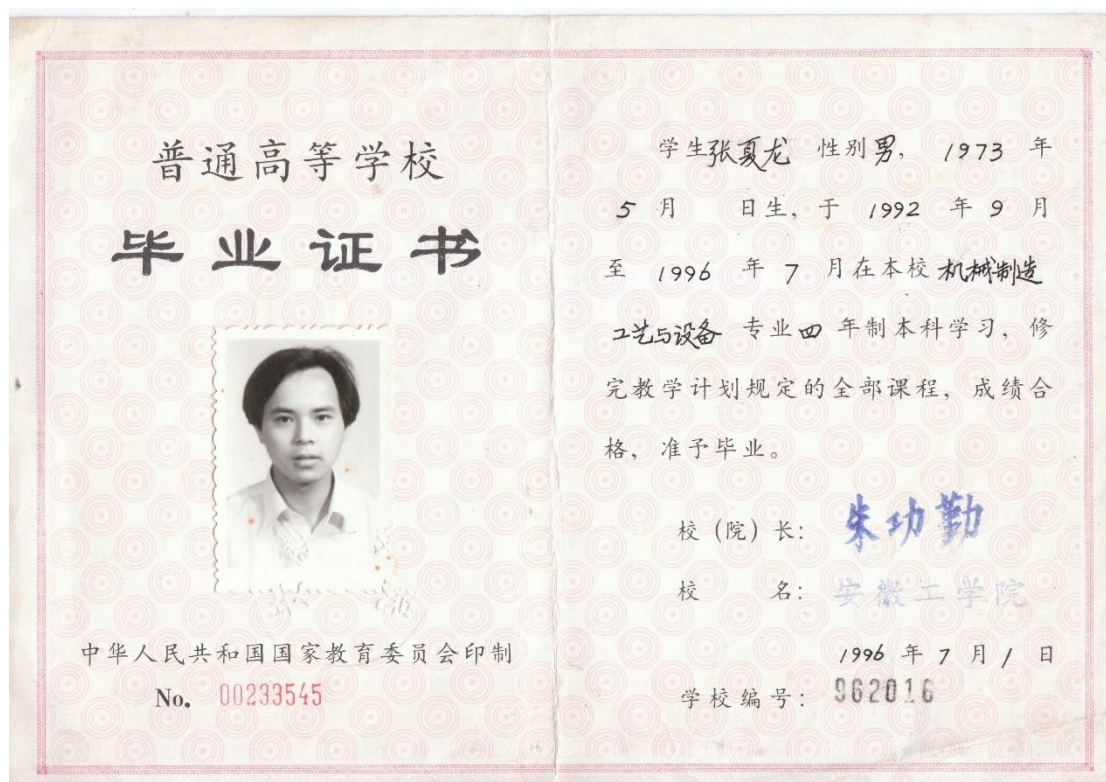 普通高等学校
毕业证书
中华人民共和国国家教育委员会印制
No. 00233545
学生张夏龙 性别男, 1973 年
5 月 日生, 于 1992 年 9 月
至 1996 年 7 月在本校机械制造
工艺与设备 专业四 年制本科学习, 修
完教学计划规定的全部课程, 成绩合
格, 准予毕业。
校 (院) 长: 朱功勤
校 名: 安徽工学院
1996 年 7 月 1 日
学校编号: 962016